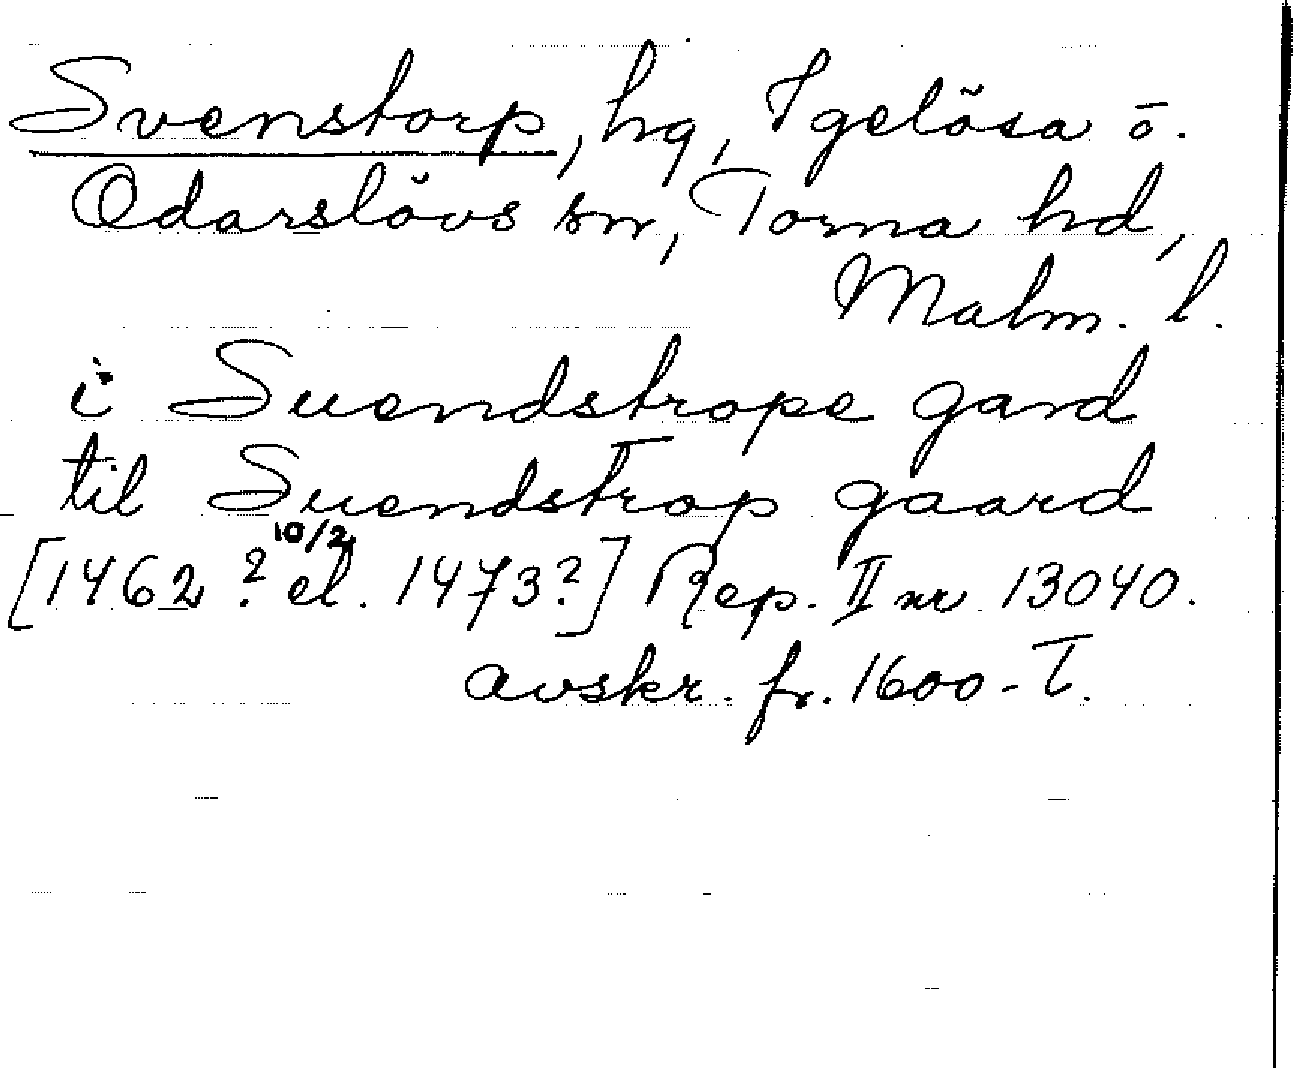 Svenstorp, hg, Igelösa o.
Odarslövs sn, Torna hd,
Malm. l.
i Suendstrope gard
til Suendstrop gaard
[1462? 10/2 el. 1473?] Rep. II nr 13040.
avskr. fr. 1600-T.